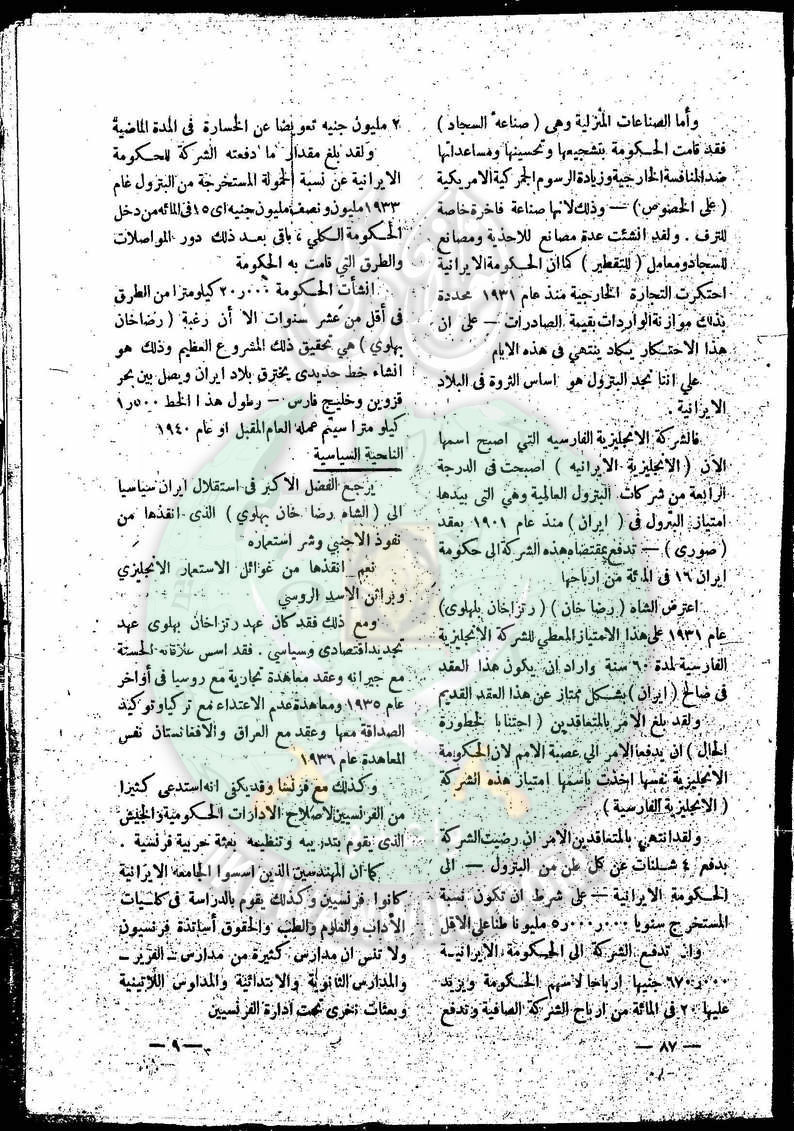 وأما الصناعات المنزلية وهي ( صناعة السجاد )
فقد قامت الحكومة بتشجيعها وتحسينها ومساعداتها
ضد المنافسة الخارجية وزيادة الرسوم الجمركية الامريكية
( على الخصوص ) — وذلك لانها صناعة فاخرة خاصة
للترف . ولقد انشئت عدة مصانع للاحذية ومصانع
للسجاد ومعامل ( للتقطير ) كما ان الحكومة الايرانية
احتكرت التجارة الخارجية منذ عام ١٩٣١ محددة
بذلك موازنة الواردات بقيمة الصادرات — على ان
هذا الاحتسكار يسكاد ينتهي فى هذه الايام
على اننا نجد البترول هو اساس الثروة فى البلاد
الايرانية .
فالشركة الانجليزية الفارسيه التي اصبح اسمها
الآن ( الانجليزية الايرانيه ) اصبحت فى الدرجة
الرابعة من شركات البترول العالمية وهي التى بيدها
امتياز البترول فى ( ايران ) منذ عام ١٩٠١ بعقد
( صورى ) — تدفع بمقتضاه هذه الشركة الى حكومة
ايران ١٦ فى المائة من ارباحها
اعترض الشاه ( رضا خان ) ( رتزاخان بلهلوى )
عام ١٩٣١ على هذا الامتياز المعطي للشركة الانجليزية
الفارسية لمدة ٦٠ سنة واراد ان يكون هذا العقد
فى صالح ( ايران ) بشكل ممتاز عن هذا العقد القديم
ولقد بلغ الامر بالمتعاقدين ( اجتنابا لخطورة
الحال ) ان يدفعا الامر الي عصبة الامم لان الحكومة
الانجليزية نفسها اخذت باسمها امتياز هذه الشركة
( الانجليزية الفارسية )
ولقد انتهي بالمتعاقدين الامر ان رضيت الشركة
بدفع ٤ شلنات عن كل طن من البترول — الى
الحكومة الايرانية — على شرط ان تكون نسبة
المستخرج سنويا ٥٫٠٠٠٫٠٠٠ مليونا طنا على الاقل
وان تدفع الشركة الى الحكومة الايرانية
٦٧٠٫٠٠٠ جنيها ارباحا لاسهم الحكومة ويزيد
عليها ٢٠ فى المائة من ارباح الشركة الصافية وتدفع
— ٨٧ —
٢ مليون جنيه تعويضا عن الخسارة فى المدة الماضية
ولقد بلغ مقدار ما دفعته الشركة للحكومة
الايرانية عن نسبة الحمولة المستخرجة من البترول عام
١٩٣٣ مليون ونصف مليون جنيه اى ١٥ فى المائه من دخل
الحكومة الكلي ، باقى بعد ذلك دور المواصلات
والطرق التي قامت به الحكومة
انشأت الحكومة ٢٠٫٠٠٠ كيلومترا من الطرق
فى أقل من عشر سنوات الا أن رغبة ( رضاخان
بهلوي ) هي تحقيق ذلك المشروع العظيم وذلك هو
انشاء خط حديدى يخترق بلاد ايران ويصل بين بحر
قزوين وخليج فارس — وطول هذا الخط ١٫٥٠٠
كيلو مترا سيتم عمله العام المقبل او عام ١٩٤٠
الناحية السياسية
يرجع الفضل الاكبر فى استقلال ايران سياسيا
الى ( الشاه رضا خان بهلوي ) الذى انقذها من
نفوذ الاجنبي وشر استعماره
نعم انقذها من غوائل الاستعمار الانجليزي
وبراثن الاسد الروسي
ومع ذلك فقد كان عهد رتزاخان بهلوى عهد
تجديد اقتصادى وسياسي . فقد اسس علاقاته الحسنة
مع جيرانه وعقد معاهدة تجارية مع روسيا فى أواخر
عام ١٩٣٥ ومعاهدة عدم الاعتداء مع تركيا وتوكيد
الصداقة معها وعقد مع العراق والافغانستان نفس
المعاهدة عام ١٩٣٦
وكذلك مع فرنسا وقد يكفى انه استدعى كثيرا
من الفرنسيين لاصلاح الادارات الحكومية والجيش
الذى يقوم بتدريبه وتنظيمه بعثة حربية فرنسية .
كما ان المهندسين الذين اسسوا الجامعه الايرانية
كانوا فرنسيين وكذلك يقوم بالدراسة فى كلسيات
الأداب والعلوم والطب والحقوق أساتذة فرنسيون
ولا تنس ان مدارس كثيرة من مدارس — الفرير —
والمدارس الثانوية والابتدائية والمدارس اللاتينية
وبعثات اخرى تحت ادارة الفرنسيين
— ٩ —